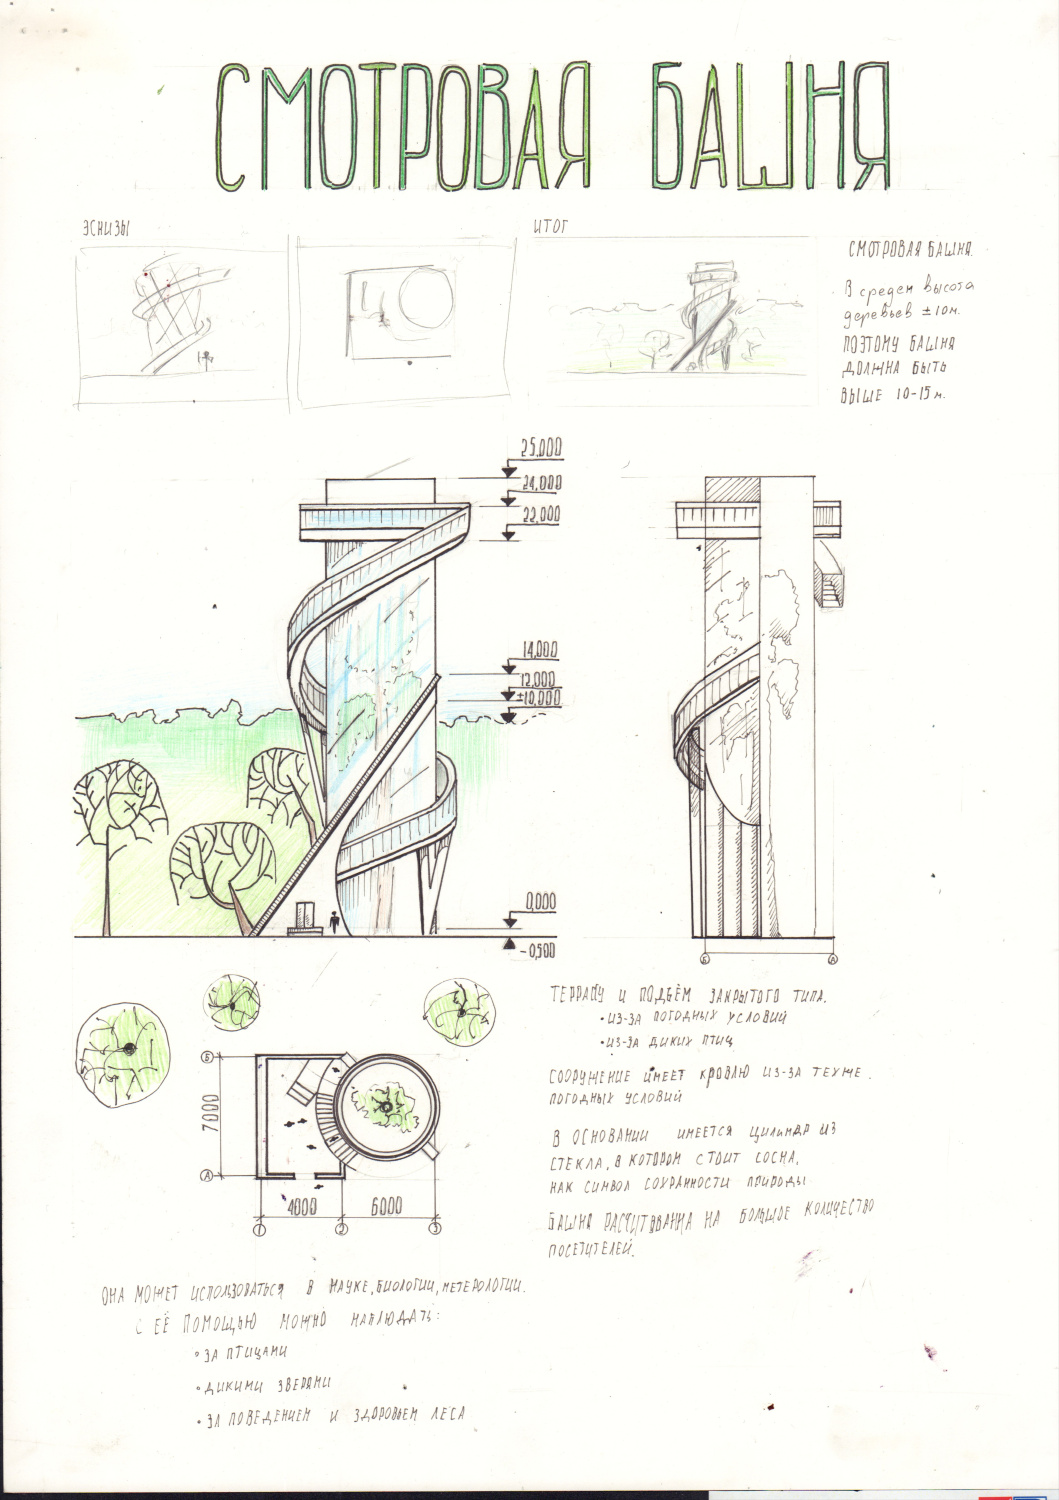 СМОТРОВАЯ БАШНЯ
ЭСКИЗЫ
ИТОГ
СМОТРОВАЯ БАШНЯ.
В средем высота
деревьев ±10м.
ПОЭТОМУ БАШНЯ
ДОЛЖНА БЫТЬ
ВЫШЕ 10-15м.
25,000
24,000
22,000
14,000
12,000
±10,000
0,000
-0,500
Б
А
ТЕРРАСУ И ПОДЪЁМ ЗАКРЫТОГО ТИПА.
•ИЗ-ЗА ПОГОДНЫХ УСЛОВИЙ
•ИЗ-ЗА ДИКИХ ПТИЦ
СООРУЖЕНИЕ ИМЕЕТ КРОВЛЮ ИЗ-ЗА ТЕХЖЕ.
ПОГОДНЫХ УСЛОВИЙ
В ОСНОВАНИИ ИМЕЕТСЯ ЦИЛИНДР ИЗ
СТЕКЛА, В КОТОРОМ СТОИТ СОСНА,
КАК СИМВОЛ СОХРАННОСТИ ПРИРОДЫ
БАШНЯ РАСЧИТОВАННА НА БОЛЬШОЕ КОЛИЧЕСТВО
ПОСЕТИТЕЛЕЙ.
Б
7000
А
4000
6000
1
2
3
ОНА МОЖЕТ ИСПОЛЬЗОВАТЬСЯ В НАУКЕ, БИОЛОГИИ, МЕТЕРОЛОГИИ.
С ЕЁ ПОМОЩЬЮ МОЖНО НАБЛЮДАТЬ:
•ЗА ПТИЦАМИ
•ДИКИМИ ЗВЕРЯМИ
•ЗА ПОВЕДЕНИЕМ И ЗДОРОВЬЕМ ЛЕСА